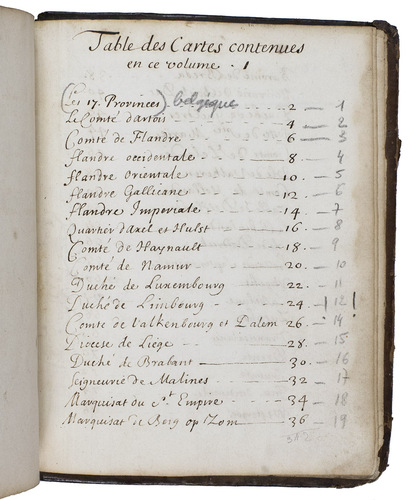 Table des Cartes contenues
en ce volume . 1
(Les 17. Provinces) belgeque - - 2 - 1
Le Comté d'artois - - - - 4 - 2
Comté de Flandre - - - - 6 - 3
flandre occidentale - - - - 8 - 4
flandre Orientale - - - - 10 - 5
flandre Gallicane - - - - 12 - 6
flandre Imperiale - - - - 14 - 7
Quartier d'axel et Hulst - - - 16 - 8
Comté de Haynault - - - - 18 - 9
Comté de Namur - - - - 20 - 10
Duché de Luxembourg - - 22 - 11
Duché de Limbourg - - - - 24 - 12 !
Comté de Valkenbourg et Dalem 26 - 14
Diocese de Liége - - - - 28 - 15
Duché de Brabant - - - - 30 - 16
Seigneurie de Malines - - - 32 - 17
Marquisat du St. Empire - - - 34 - 18
Marquisat de Berg op Zom - - 36 - 19